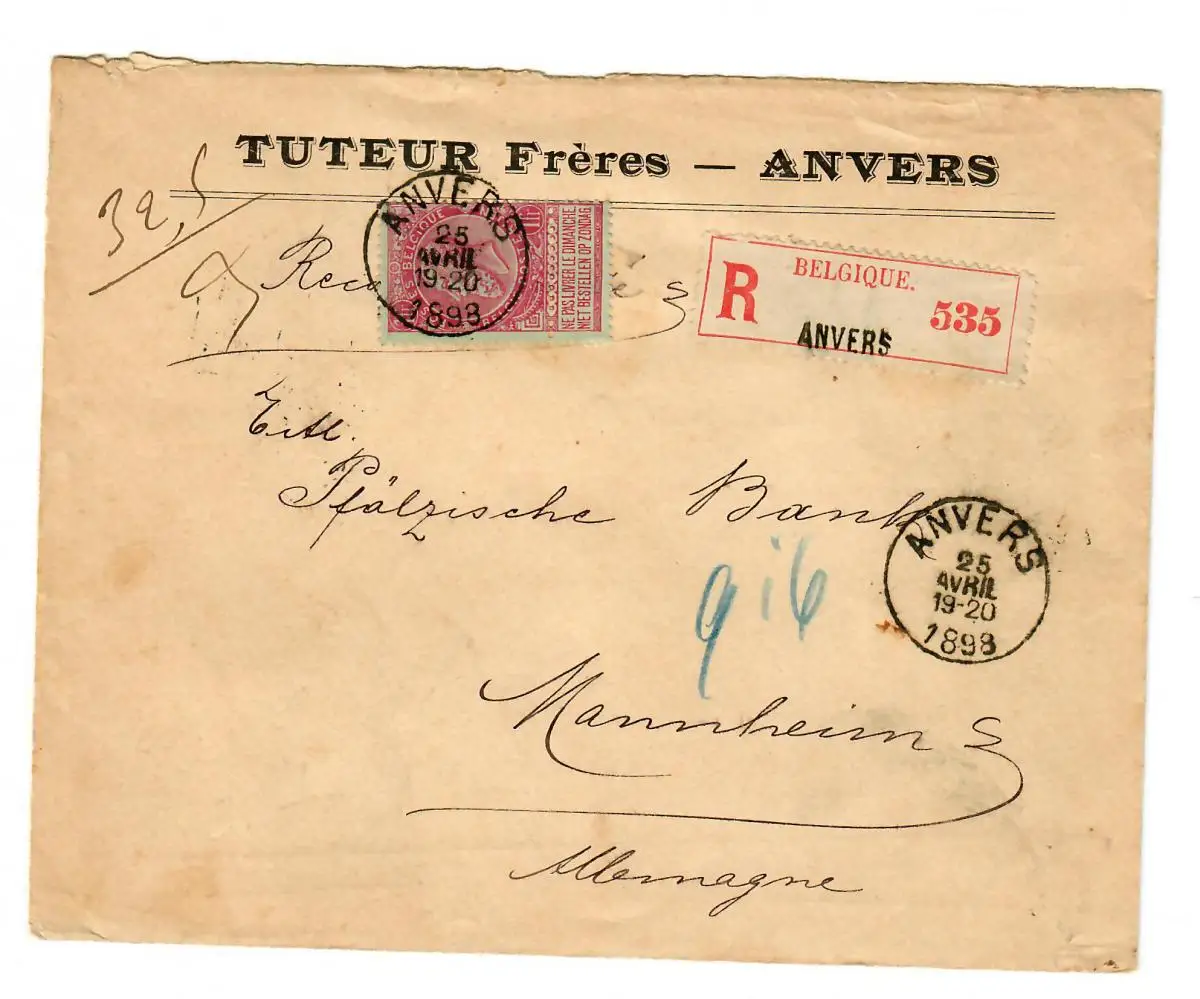 TUTEUR Frères — ANVERS
32,5
ANVERS
25
AVRIL
19-20
1898
BELGIQUE
NE PAS LIVRER LE DIMANCHE
NIET BESTELLEN OP ZONDAG
R BELGIQUE. 535
ANVERS
Titl.
Pfälzische Bank
ANVERS
25
AVRIL
19-20
1898
Mannheim
Allemagne